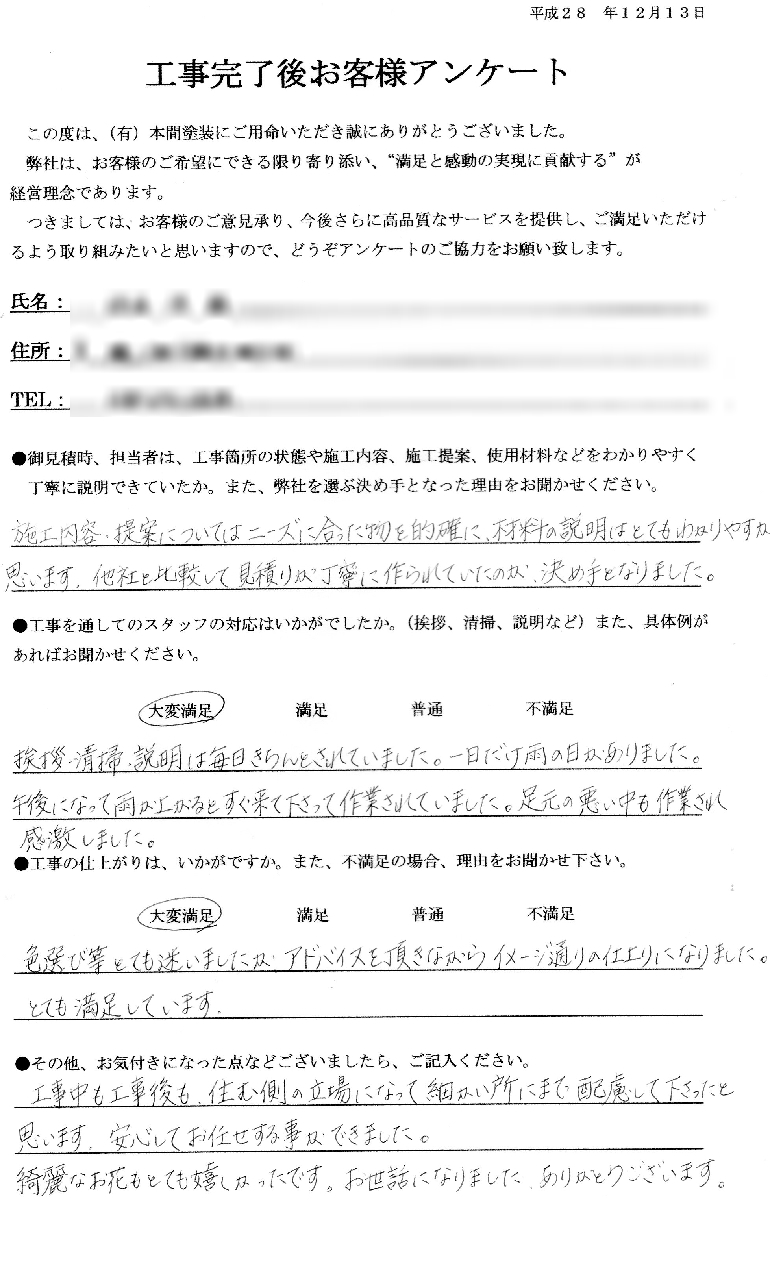 平成２８　年１２月１３日
工事完了後お客様アンケート
この度は、（有）本間塗装にご用命いただき誠にありがとうございました。
弊社は、お客様のご希望にできる限り寄り添い、“満足と感動の実現に貢献する”が
経営理念であります。
つきましては、お客様のご意見承り、今後さらに高品質なサービスを提供し、ご満足いただけ
るよう取り組みたいと思いますので、どうぞアンケートのご協力をお願い致します。
氏名：
住所：
TEL：
●御見積時、担当者は、工事箇所の状態や施工内容、施工提案、使用材料などをわかりやすく
丁寧に説明できていたか。また、弊社を選ぶ決め手となった理由をお聞かせください。
施工内容・提案についてはニーズに合った物を的確に、材料の説明はとてもわかりやすか
思います。他社と比較して見積りが丁寧に作られていたのが、決め手となりました。
●工事を通してのスタッフの対応はいかがでしたか。（挨拶、清掃、説明など）また、具体例が
あればお聞かせください。
大変満足　満足　普通　不満足
挨拶・清掃、説明は毎日きちんとされていました。一日だけ雨の日がありました。
午後になって雨が上がるとすぐ来て下さって作業されていました。足元の悪い中も作業され
感激しました。
●工事の仕上がりは、いかがですか。また、不満足の場合、理由をお聞かせ下さい。
大変満足　満足　普通　不満足
色選び等とても迷いましたが、アドバイスを頂きながらイメージ通りの仕上りになりました。
とても満足しています。
●その他、お気付きになった点などございましたら、ご記入ください。
工事中も工事後も、住む側の立場になって細かい所にまで配慮して下さったと
思います。安心してお任せする事ができました。
綺麗なお花もとても嬉しかったです。お世話になりました、ありがとうございます。